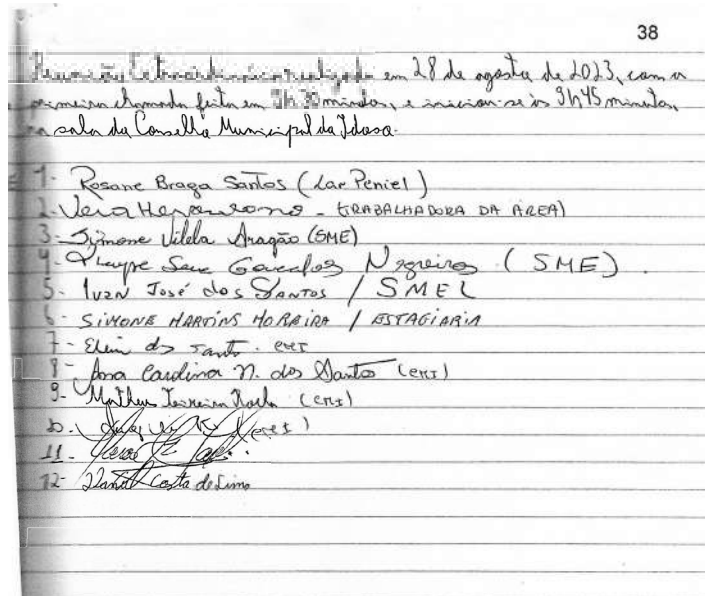 38
Reunião Extraordinária realizada em 28 de agosto de 2023, com a
primeira chamada feita em 9h 30 minutos, e iniciou-se às 9h45 minutos,
na sala do Conselho Municipal do Idoso.
1- Rosane Braga Santos (Lar Peniel)
2- Vera - TRABALHADORA DA ÁREA)
3- Simone Vilela Aragão (SME)
4- Negreiros (SME).
5- Ivan José dos Santos / SMEL
6- SIMONE MARTINS MOREIRA / ESTAGIARIA
7- dos Santos. CMI
8- Ana Carolina N. dos Santos (CMI)
9- Matheus Teixeira Rocha (CMI)
10- (CMI)
11-
12- Costa de Lima